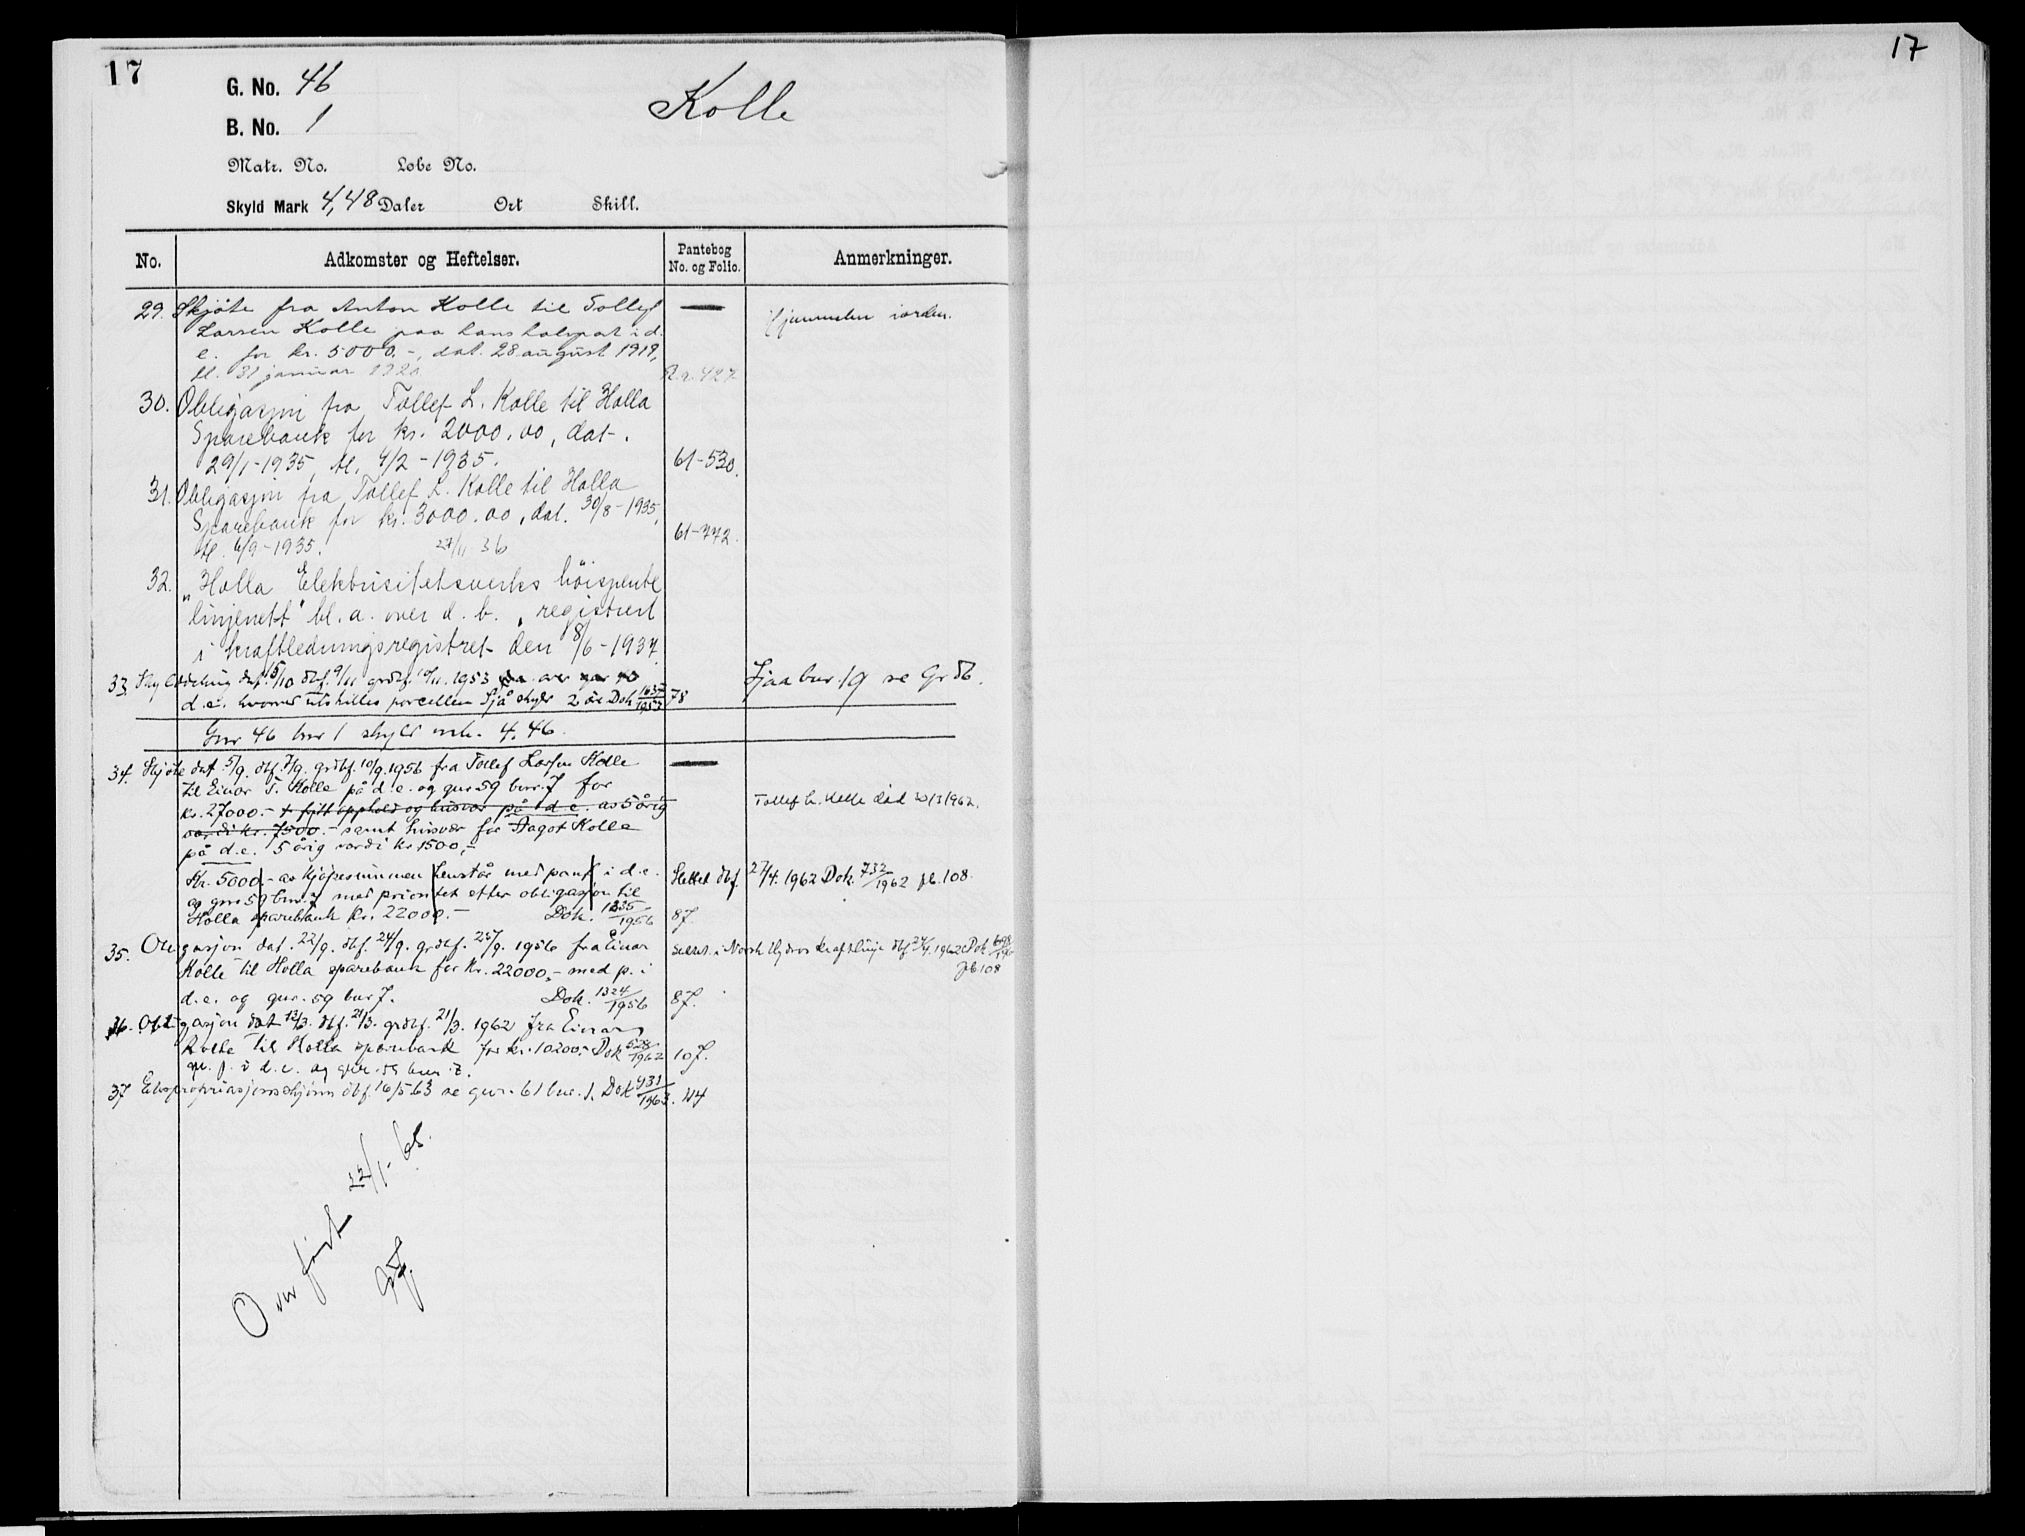 17
17
G. No. 46
Kolle
B. No. 1
Matr. No. Løbe No.
Skyld Mark 4,48 Daler Ort Skill.
No. Adkomster og Heftelser. Pantebog No. og Folio. Anmerkninger.
29. Skjøte fra Anton Kolle til Tollef — Hjemmelen iorden.
Larsen Kolle paa hans halvpart i d.
e. for kr. 5000.-, dat. 28 august 1919,
tl. 31 januar 1920. 427
30. Obligasjon fra Tollef L. Kolle til Holla
Sparebank for kr. 2000.00, dat.
29/1-1935, tl. 4/2-1935. 61-530.
31. Obligasjon fra Tollef L. Kolle til Holla
Sparebank for kr. 3000.00, dat. 30/8-1935,
tl. 6/9-1935. 27/11 36 61-772.
32. "Holla Elektrisitetsverks höispente
linjenett" bl. a. over d. b., registrert
i kraftledningsregistret den 8/6-1937.
33. Skylddeling dat. 15/10 dbf. 9/11 grdbf. 10/11. 1953 over
d.e. hvorved utskilles parcellen Sjå skyld 2 øre Dok 1637/1953 78 Sjaa bnr 19 se Gr db.
Gnr 46 bnr 1 skyld mk. 4.46.
34. Skjøte dat 5/9. dbf. 7/9. grdbf. 10/9. 1956 fra Tollef Larsen Kolle —
til Einar T. Kolle på d.e. og gnr 59 bnr. 7 for
kr. 27000.- + fritt opphold og husvær på d.e. av 5 årig Tollef L. Kolle død 20/3 1962.
verdi kr. 7500.- samt husvær for Dagot Kolle
på d.e. 5 årig verdi kr 1500,-
Kr. 5000.- av kjøpesummen henstår med pant i d.e. Slettet dbf. 27/4. 1962 Dok. 732/1962 pb. 108.
og gnr 59 bnr. 7 med prioritet etter obligasjon til
Holla sparebank kr. 22000.- Dok. 1235/1956 87.
35. Obligasjon dat. 22/9. dbf. 24/9. grdbf. 25/9. 1956 fra Einar i Norsk Hydros kraftlinje dbf. 24/4. 1962 Dok
Kolle til Holla sparebank for kr. 22000,- med p. i pb 108
d.e. og gnr. 59 bnr 7. Dok. 1324/1956 87.
36. Obligasjon dat 13/3. dbf. 21/3. grdbf. 21/3. 1962 fra Einar
Kolle til Holla sparebank for kr. 10200.- Dok 528/1962 107.
m. p. i d.e. og gnr. 59 bnr. 7.
37 Ekspropriasjonsskjønn dbf. 16/5 63 se gnr. 61 bnr. 1. Dok 931/1963. 114
Overført 22/1-65.